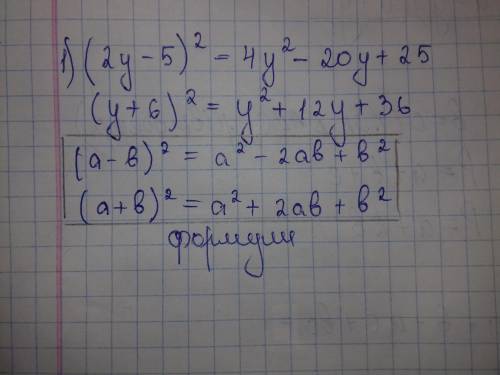 1) (2y - 5)² = 4y² - 20y + 25
(y + 6)² = y² + 12y + 36
(a - в)² = a² - 2aв + в²
(a + в)² = a² + 2aв + в²
формули